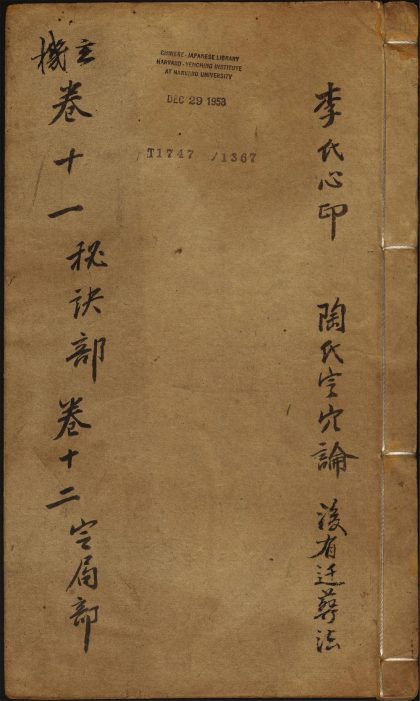 李氏心印 陶氏定穴論 後有迁葬法
CHINESE-JAPANESE LIBRARY
HARVARD-YENCHING INSTITUTE
AT HARVARD UNIVERSITY
DEC 29 1953
T1747 /1367
玄機卷十一 秘訣部 卷十二 定局部